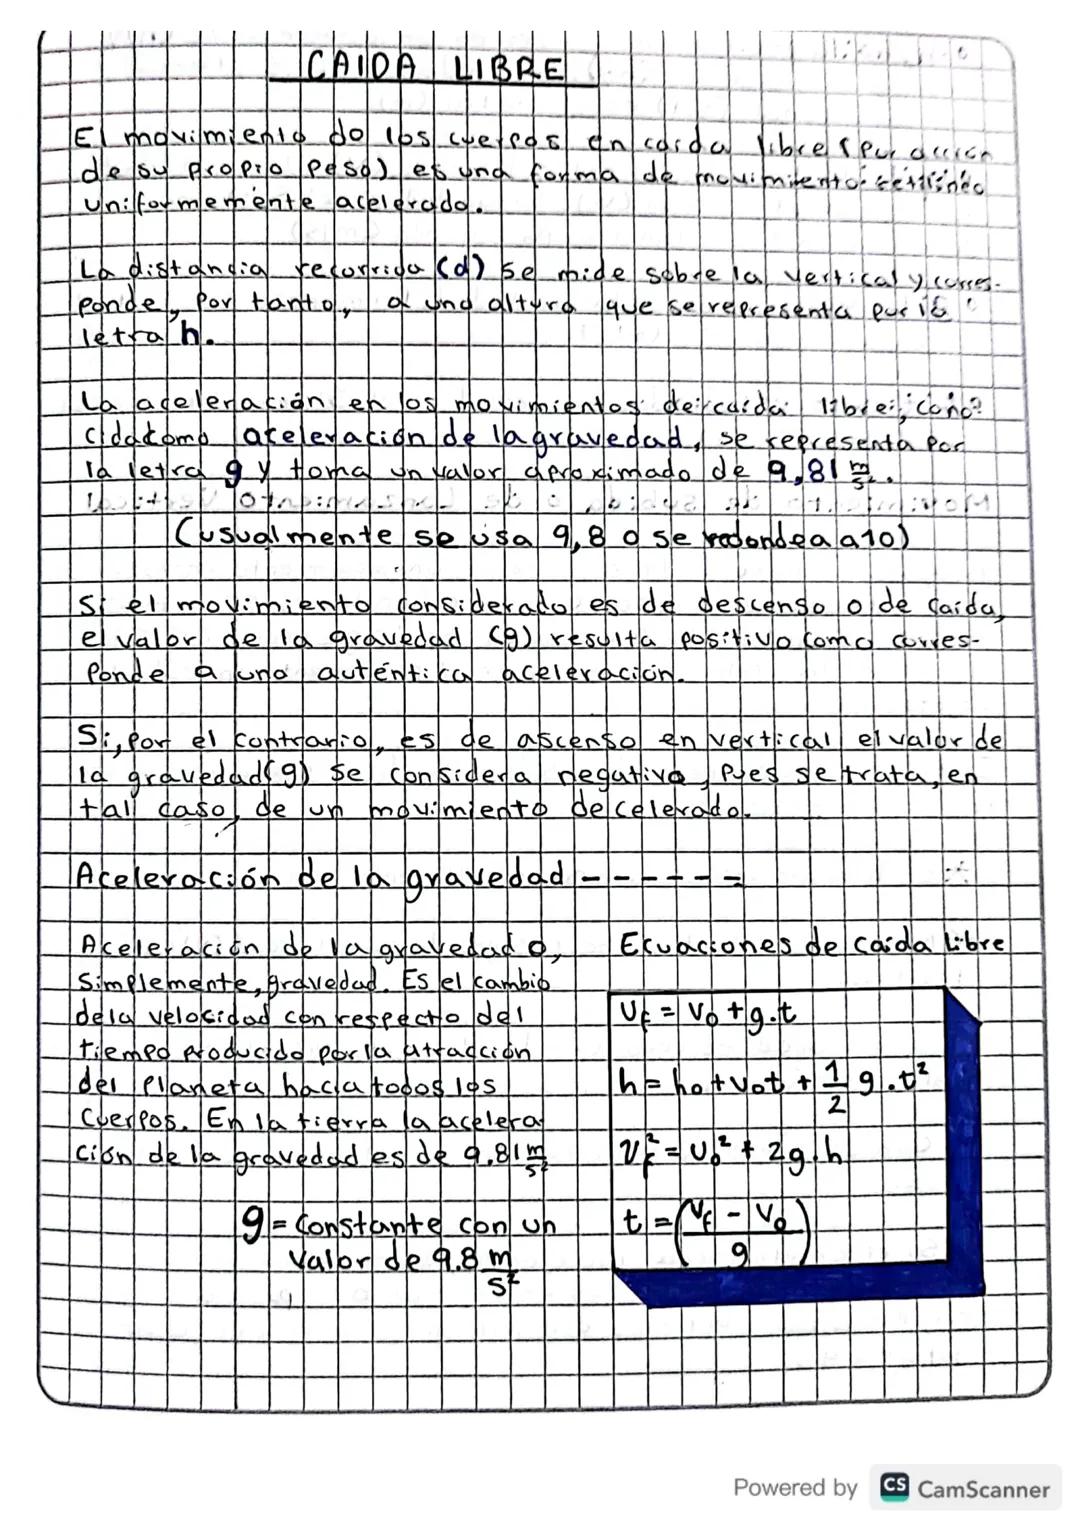 CAIDA LIBRE
El movimiento de los cuerpos en caida libre (por acción
de su propio peso) es una forma de movimiento rectilíneo
uniformemente acelerado.
La distancia recorrida (d) se mide sobre la vertical y corres-
ponde, por tanto, a una altura que se representa por la
letra h.
La aceleración en los movimientos de caida libre, cono-
cida como aceleración de la gravedad, se representa por
la letra g y toma un valor aproximado de 9,81 m/s².
(usualmente se usa 9,8 o se redondea a 10)
Si el movimiento considerado es de descenso o de caida,
el valor de la gravedad (g) resulta positivo como corres-
ponde a una auténtica aceleración.
Si, por el contrario, es de ascenso en vertical el valor de
la gravedad (g) se considera negativa, pues se trata, en
tal caso, de un movimiento decelerado.
Aceleración de la gravedad ------
Aceleración de la gravedad o,
simplemente, gravedad. Es el cambio
de la velocidad con respecto del
tiempo producido por la atracción
del planeta hacia todos los
cuerpos. En la tierra la acelera
ción de la gravedad es de 9.81 m/s²
g = Constante con un
valor de 9.8 m/s²
Ecuaciones de caida Libre
Vf = V₀ + g.t
h = h₀ + v₀t + 1/2 g.t²
Vf² = V₀² + 2g.h
t = (Vf - V₀ / g)
Powered by CS CamScanner